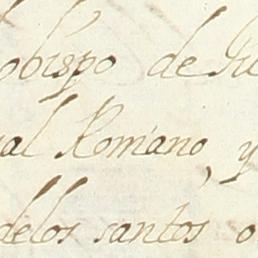 obispo de
al Romano, y
delos santos o